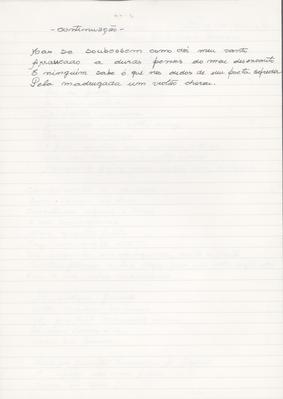 - continuação -
Mas se soubessem como dói meu canto
Arrancado a duras penas do meu desencanto
E ninguém sabe o que nos dedos de um poeta
Pela madrugada um violão chora.